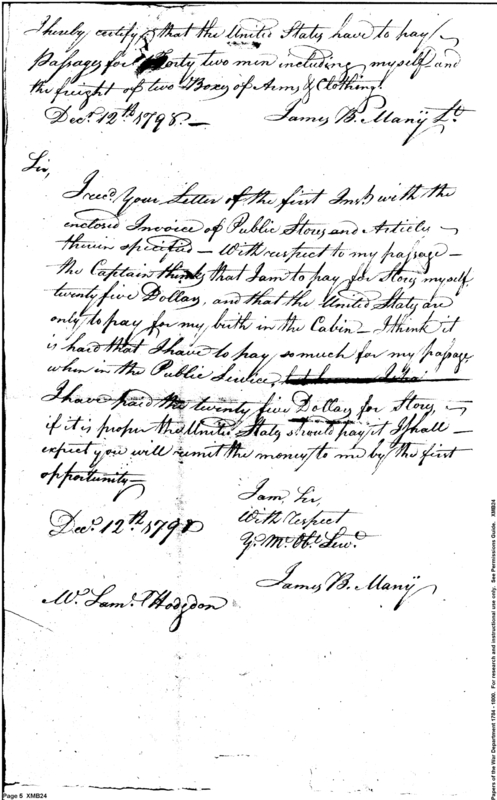 I hereby certify that the United States have to pay
Passages for Forty two men including myself and
the freight of two Boxes of Arms & Clothing.
Decr. 12th 1798.—
James B. Many Lt.
Sir,
I recd. Your Letter of the first Inst. with the
enclosed Invoice of Public Stores and Articles
therein specified — With respect to my passage —
the Captain thinks that I am to pay for Stores myself
twenty five Dollars, and that the United States are
only to pay for my birth in the Cabin — I think it
is hard that I have to pay so much for my passage,
when in the Public Service,
I have paid the twenty five Dollars for Stores, —
if it is proper the United States should pay it I shall —
expect you will remit the money to me by the first
opportunity —
I am, Sir,
With respect
Decr. 12th 1798
Yr. Mo. Obt. Servt.
James B. Many
Mr. Saml. Hodgdon
Page 5 XMB24
Papers of the War Department 1784 - 1800. For research and instructional use only. See Permissions Guide. XMB24